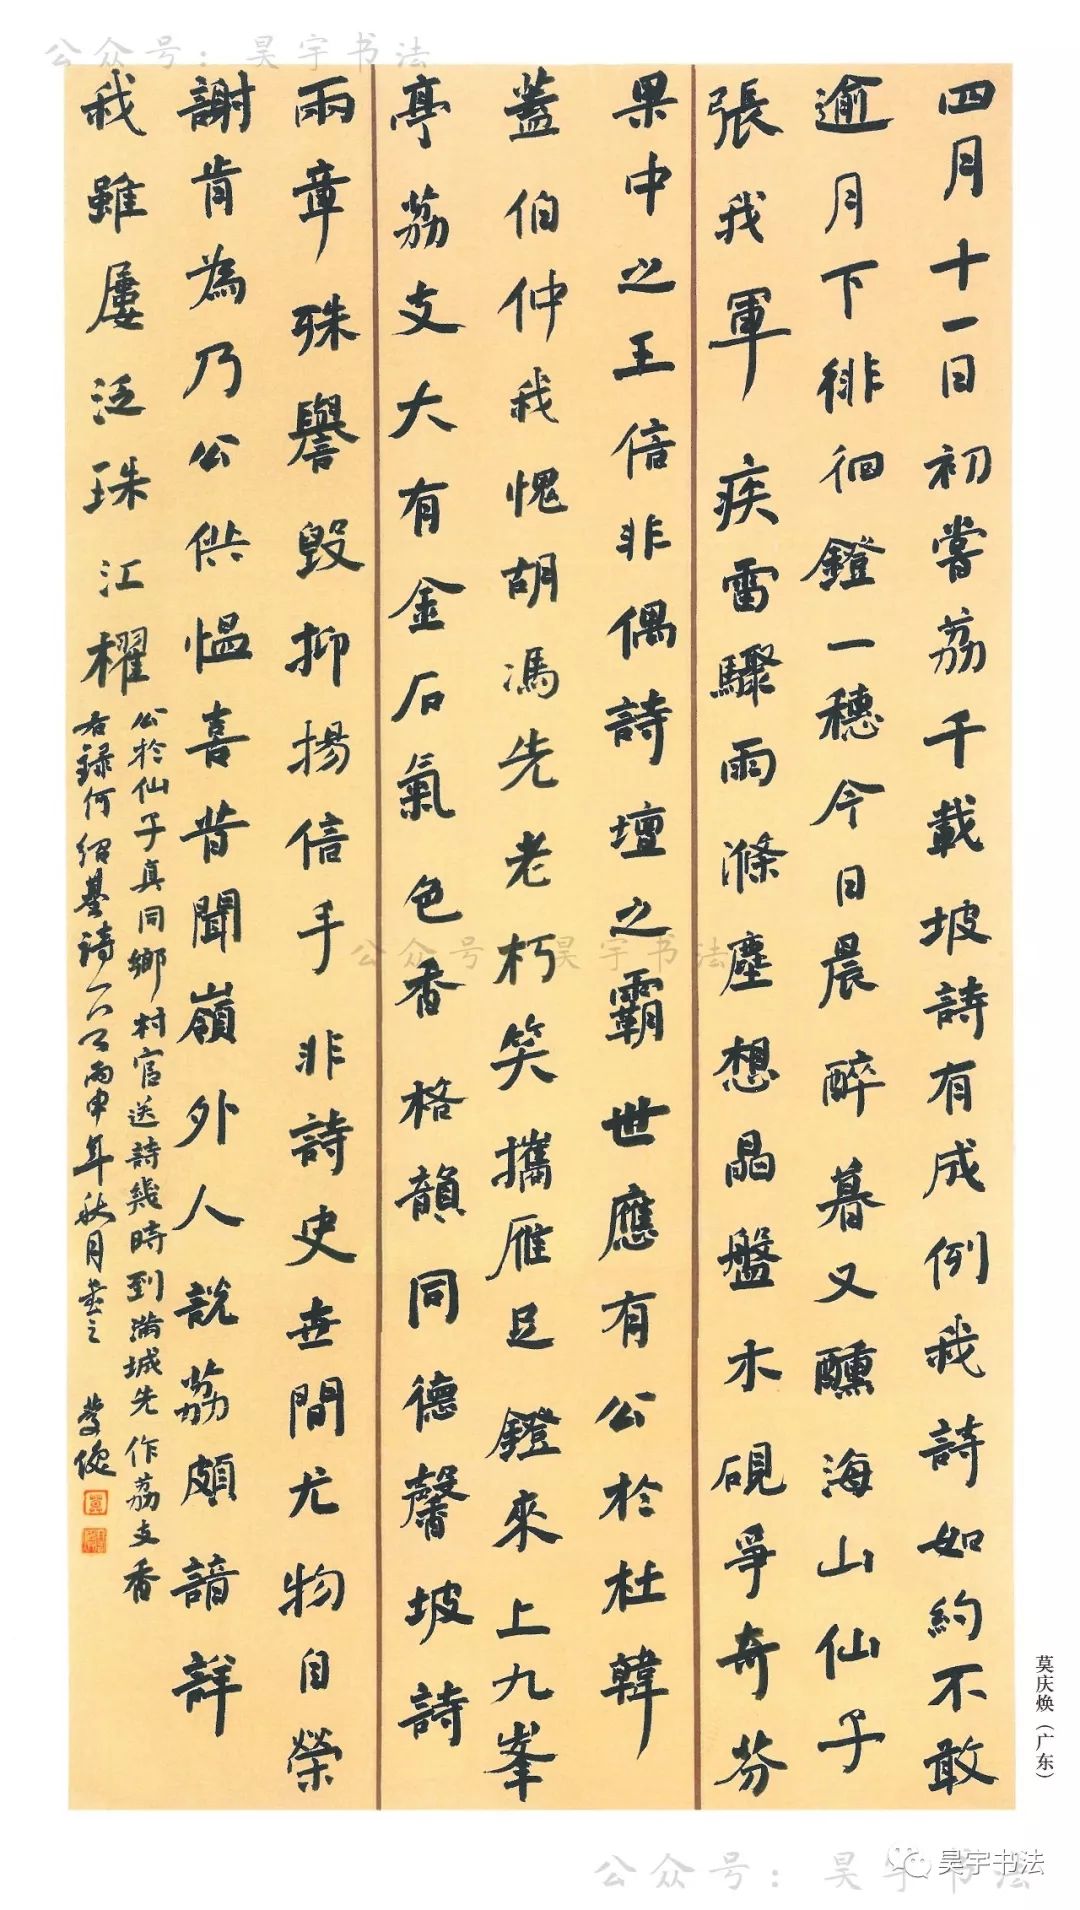 公众号：昊宇书法
四月十一日初嘗荔千載坡詩有成例我詩如約不敢
逾月下徘徊鐙一穗今日晨醉暮又醺海山仙子
張我軍疾雷驟雨滌塵想晶盤木硯爭奇芬
果中之王倍非偶詩壇之霸世應有公於杜韓
蓋伯仲我愧胡馮先老朽笑攜雁足鐙來上九峯
亭荔支大有金石氣色香格韻同德馨坡詩
兩章殊譽毀抑揚信手非詩史世間尤物自榮
謝肯為乃公供愠喜昔聞嶺外人說荔頗諳詳
我雖屢泛珠江櫂
公於仙子真同鄉村官送詩幾時到滿城先作荔支香
右録何紹基詩一首丙申年秋月書之
慶煥
公众号 昊宇书法
莫庆焕（广东）
昊宇书法
公众号：昊宇书法